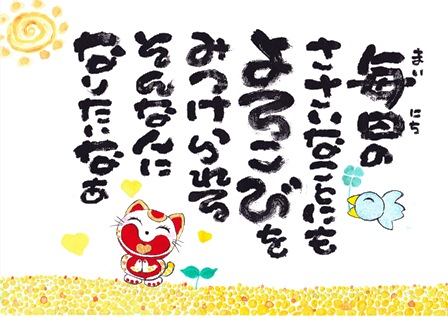 毎日の
まいにち
ささいなことにも
よろこびを
みつけられる
そんなんに
なりたいなぁ